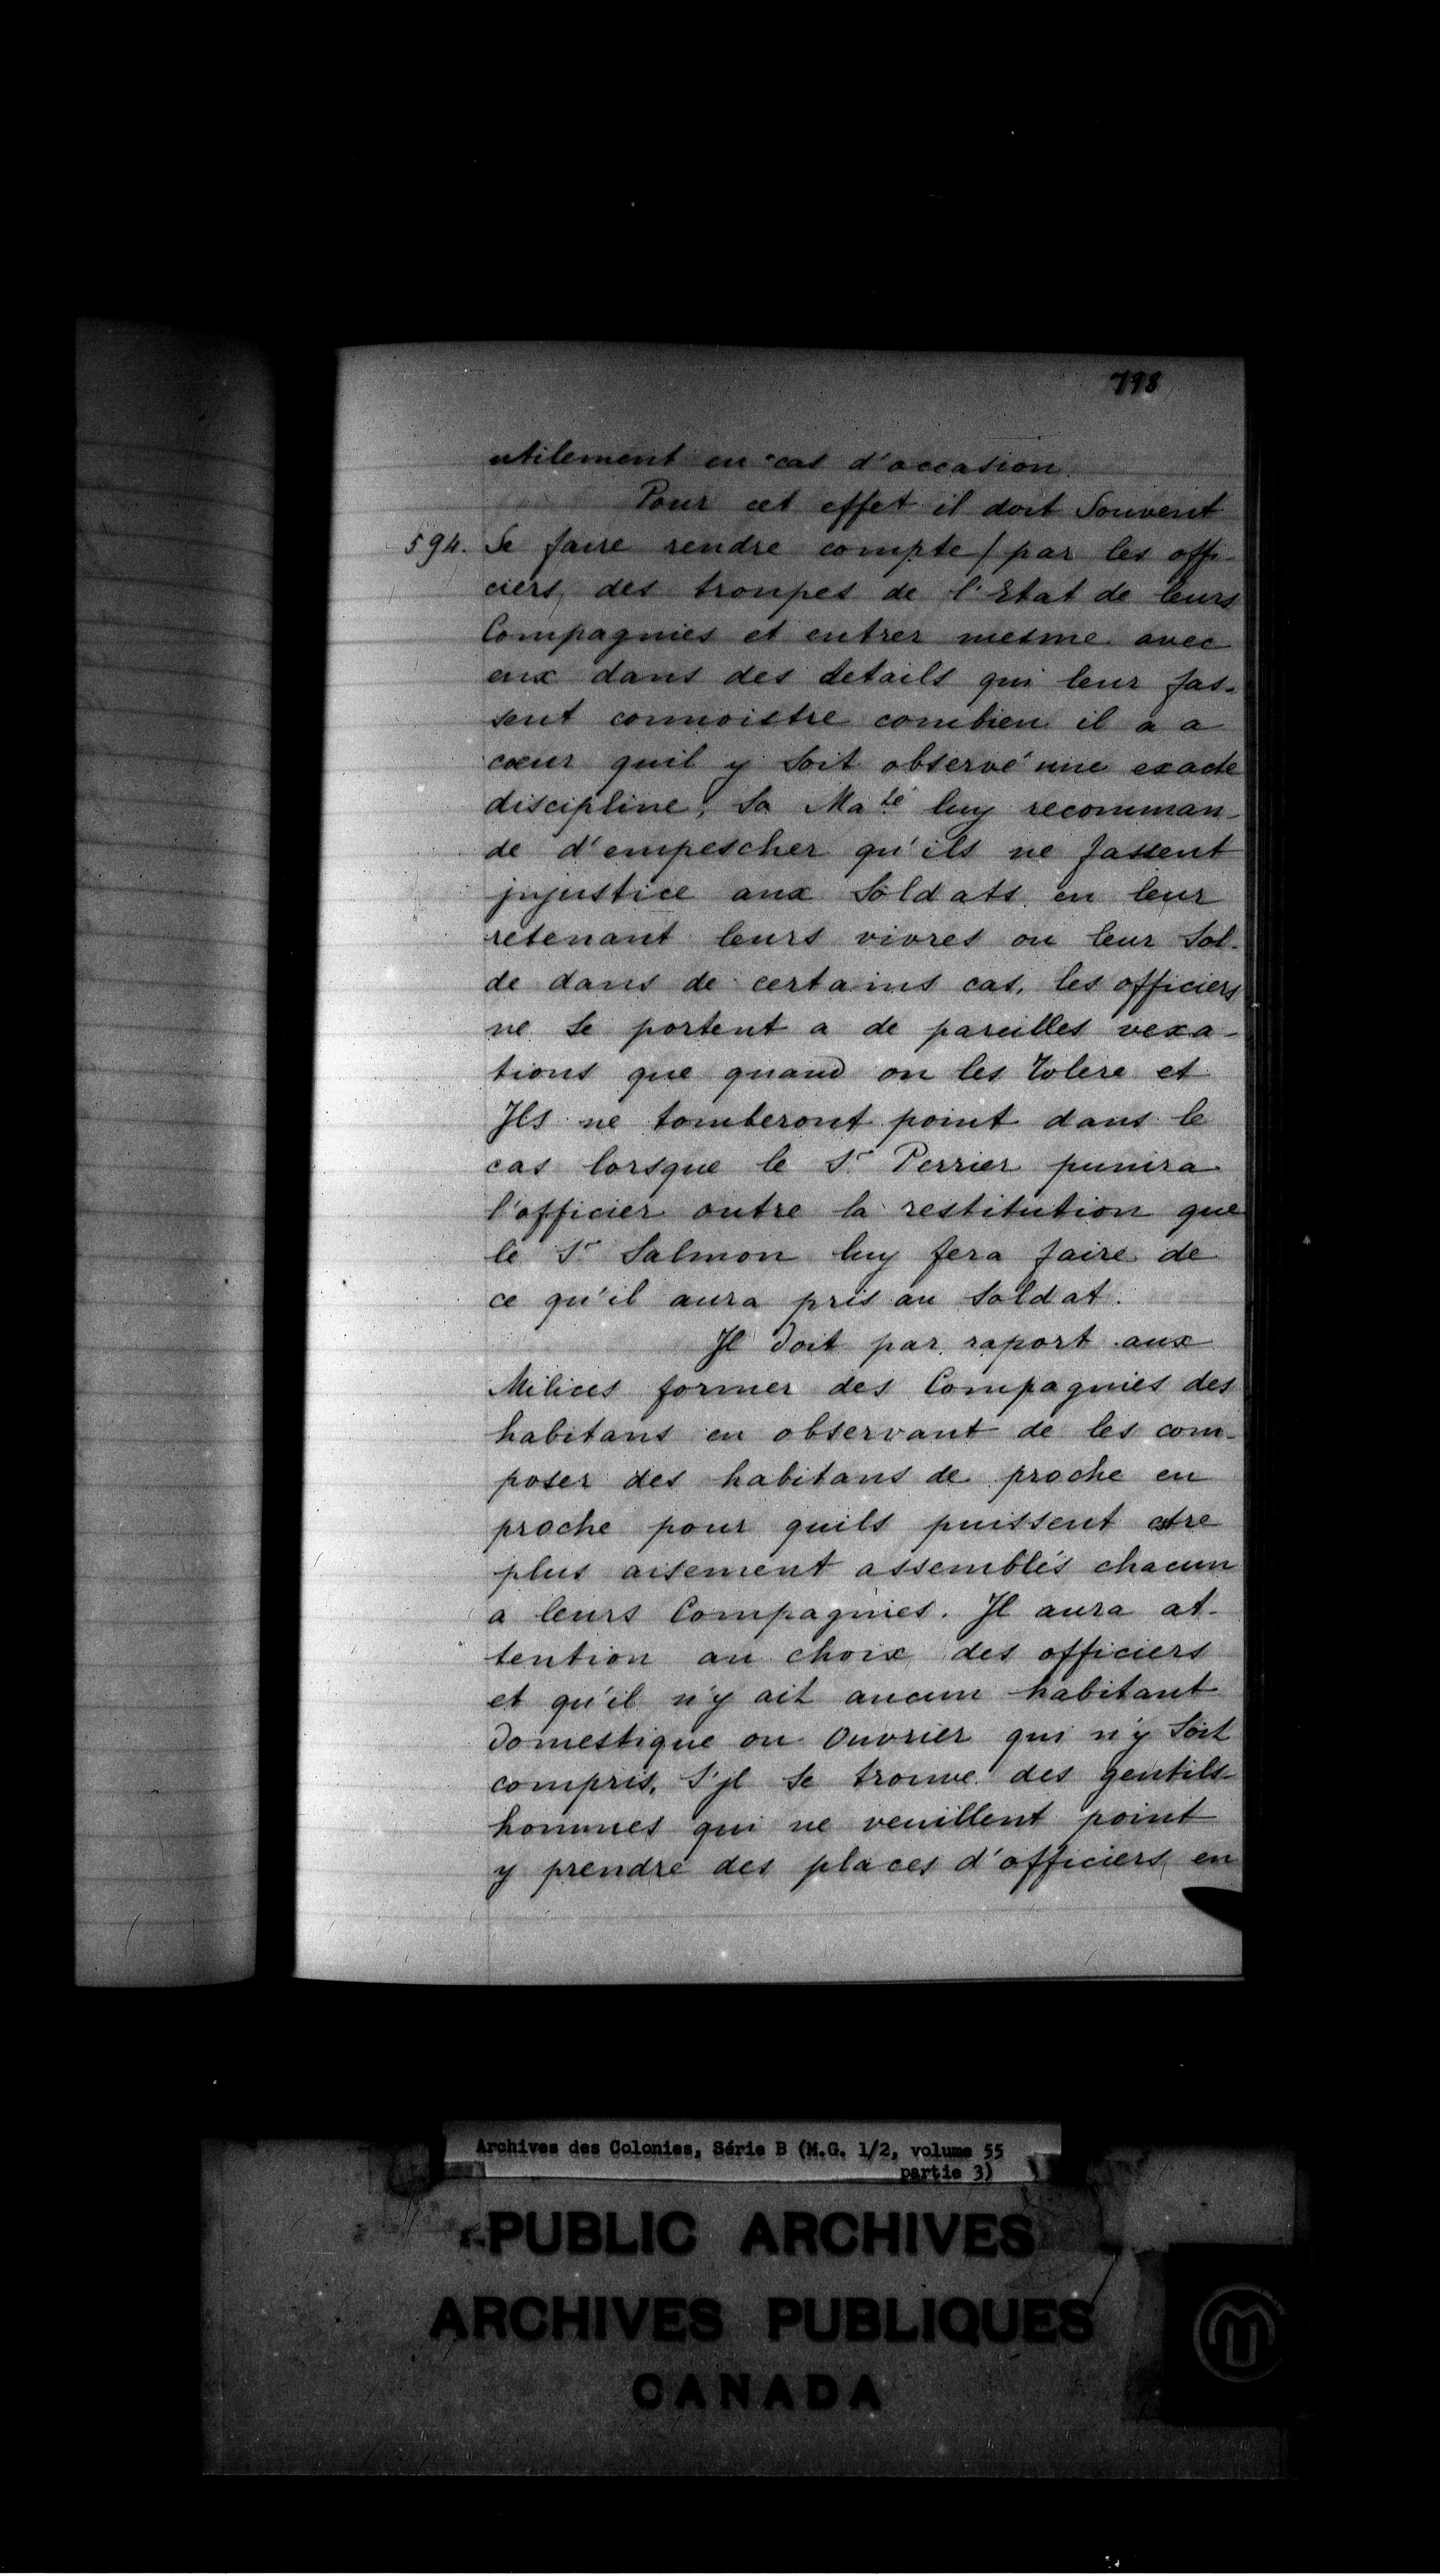 798
utilement en cas d'occasion.
Pour cet effet il doit Souvent
594. Se faire rendre compte / par les offi-
ciers, des troupes de l'Etat de leurs
Compagnies et entrer mesme avec
eux dans des details qui leur fas-
sent connoistre combien il a a
cœur quil y Soit observé une exacte
discipline, Sa Maté luy recomman-
de d'empescher qu'ils ne fassent
injustice aux Soldats en leur
retenant leurs vivres ou leur Sol-
de dans de certains cas, les officiers
ne Se portent a de pareilles vexa-
tions que quand on les Tolere et
Ils ne tomberont point dans le
cas lorsque le Sr Perrier punira
l'officier outre la restitution que
le Sr Salmon luy fera faire de
ce qu'il aura pris au Soldat.
Il doit par raport aux
Milices former des Compagnies des
habitans en observant de les com-
poser des habitans de proche en
proche pour quils puissent estre
plus aisement assemblés chacun
a leurs Compagnies. Il aura at-
tention au choix des officiers
et qu'il n'y ait aucun habitant
Domestique ou Ouvrier qui n'y Soit
compris, S'jl Se trouve des gentils-
hommes qui ne veuillent point
y prendre des places d'officiers, en
Archives des Colonies, Série B (M.G. 1/2, volume 55
partie 3)
PUBLIC ARCHIVES
ARCHIVES PUBLIQUES
CANADA